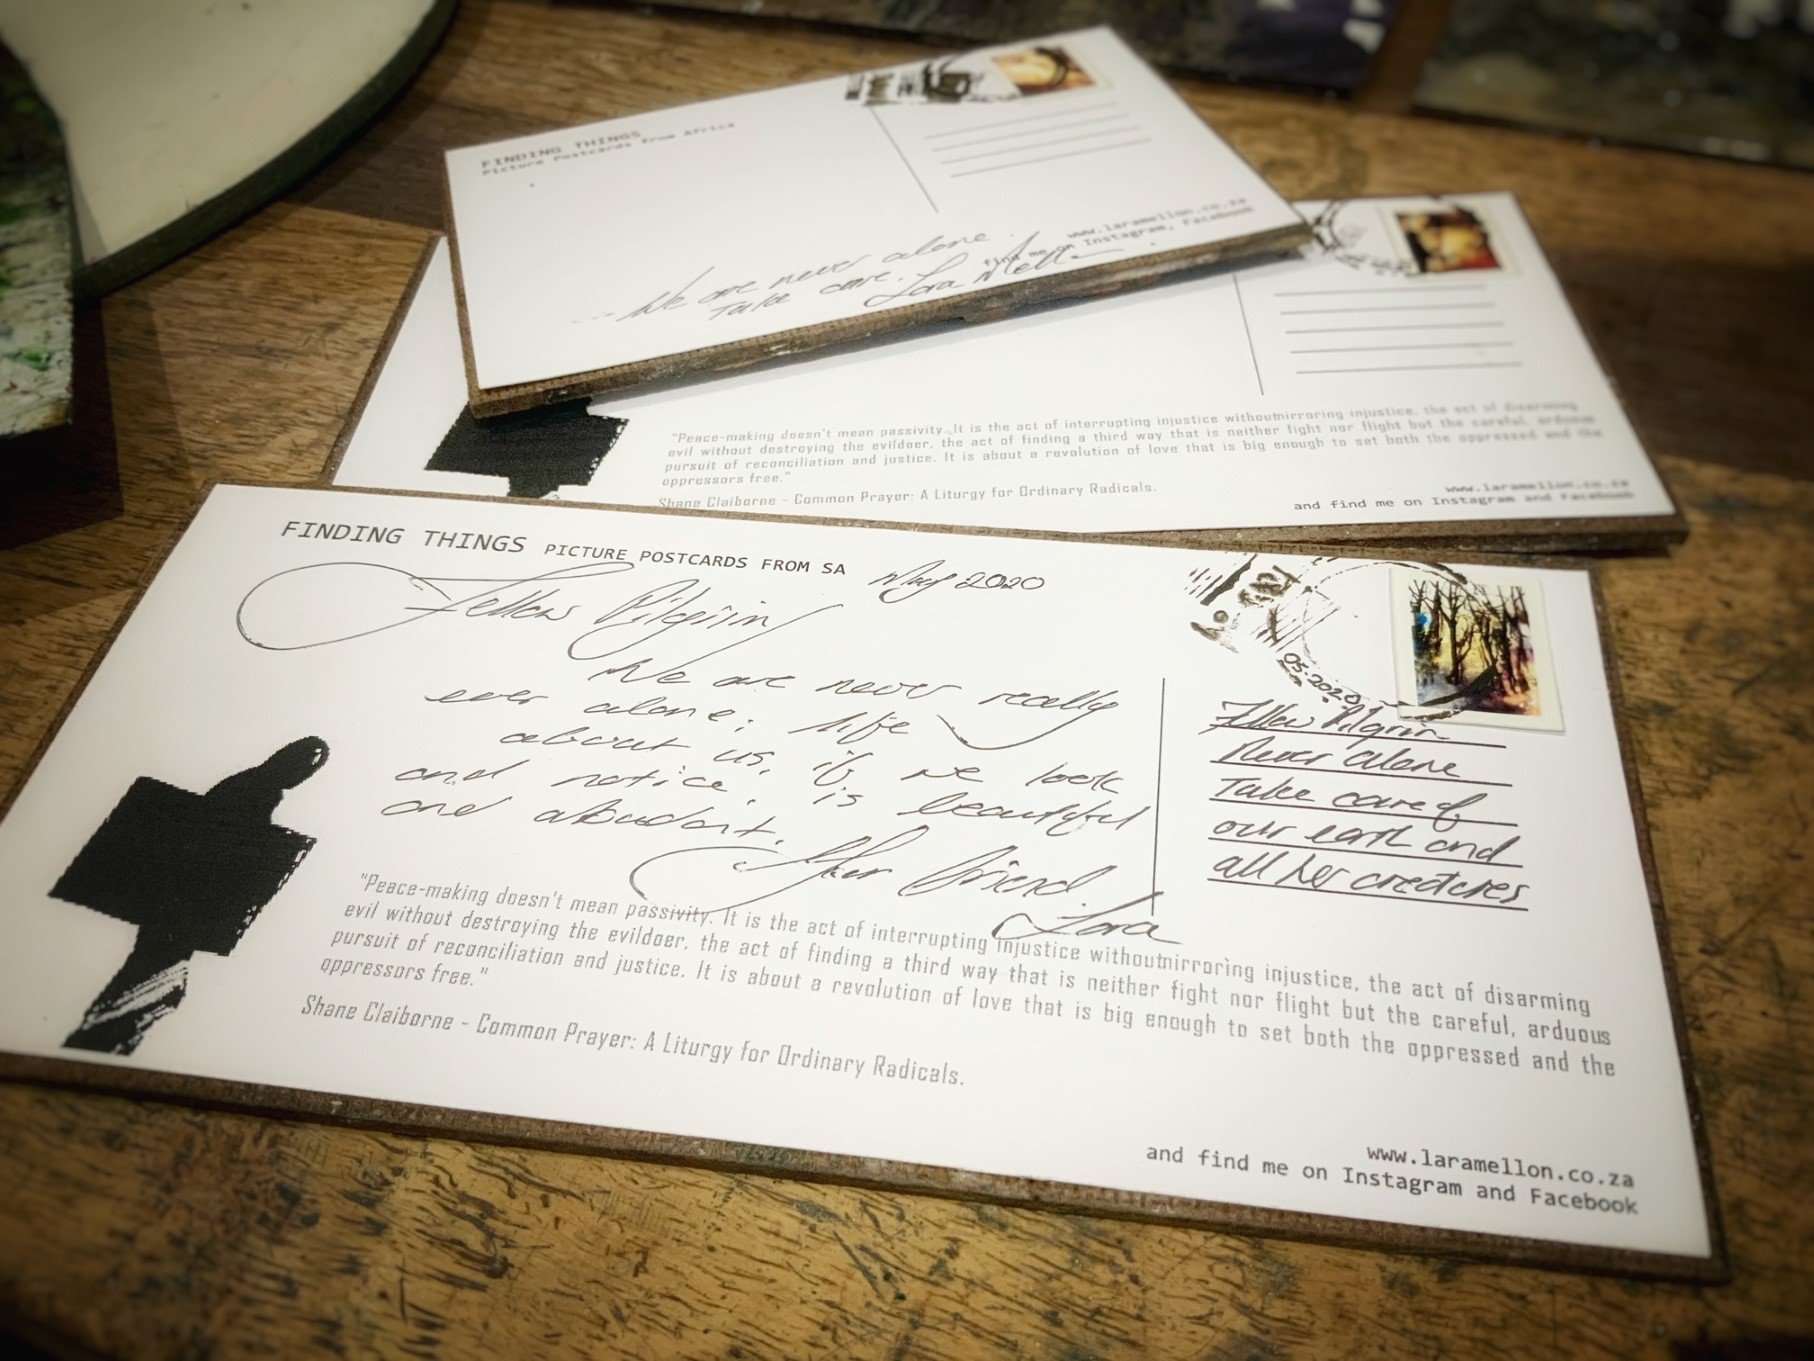 FINDING THINGS
Picture Postcards from Africa
www.laramellon.co.za
find me on Instagram, Facebook
... We are never alone.
Take care. Lara Mellon
"Peace-making doesn't mean passivity. It is the act of interrupting injustice withoutmirroring injustice, the act of disarming
evil without destroying the evildoer, the act of finding a third way that is neither fight nor flight but the careful, arduous
pursuit of reconciliation and justice. It is about a revolution of love that is big enough to set both the oppressed and the
oppressors free."
Shane Claiborne - Common Prayer: A Liturgy for Ordinary Radicals.
www.laramellon.co.za
and find me on Instagram and Facebook
FINDING THINGS PICTURE POSTCARDS FROM SA
May 2020
Fellow Pilgrim
We are never really
ever alone; life
about us, if we look
and notice, is beautiful
and abundant.
Your friend.
Lara
05.2020
Fellow Pilgrim
Never alone
Take care of
our earth and
all her creatures
"Peace-making doesn't mean passivity. It is the act of interrupting injustice withoutmirroring injustice, the act of disarming
evil without destroying the evildoer, the act of finding a third way that is neither fight nor flight but the careful, arduous
pursuit of reconciliation and justice. It is about a revolution of love that is big enough to set both the oppressed and the
oppressors free."
Shane Claiborne - Common Prayer: A Liturgy for Ordinary Radicals.
www.laramellon.co.za
and find me on Instagram and Facebook